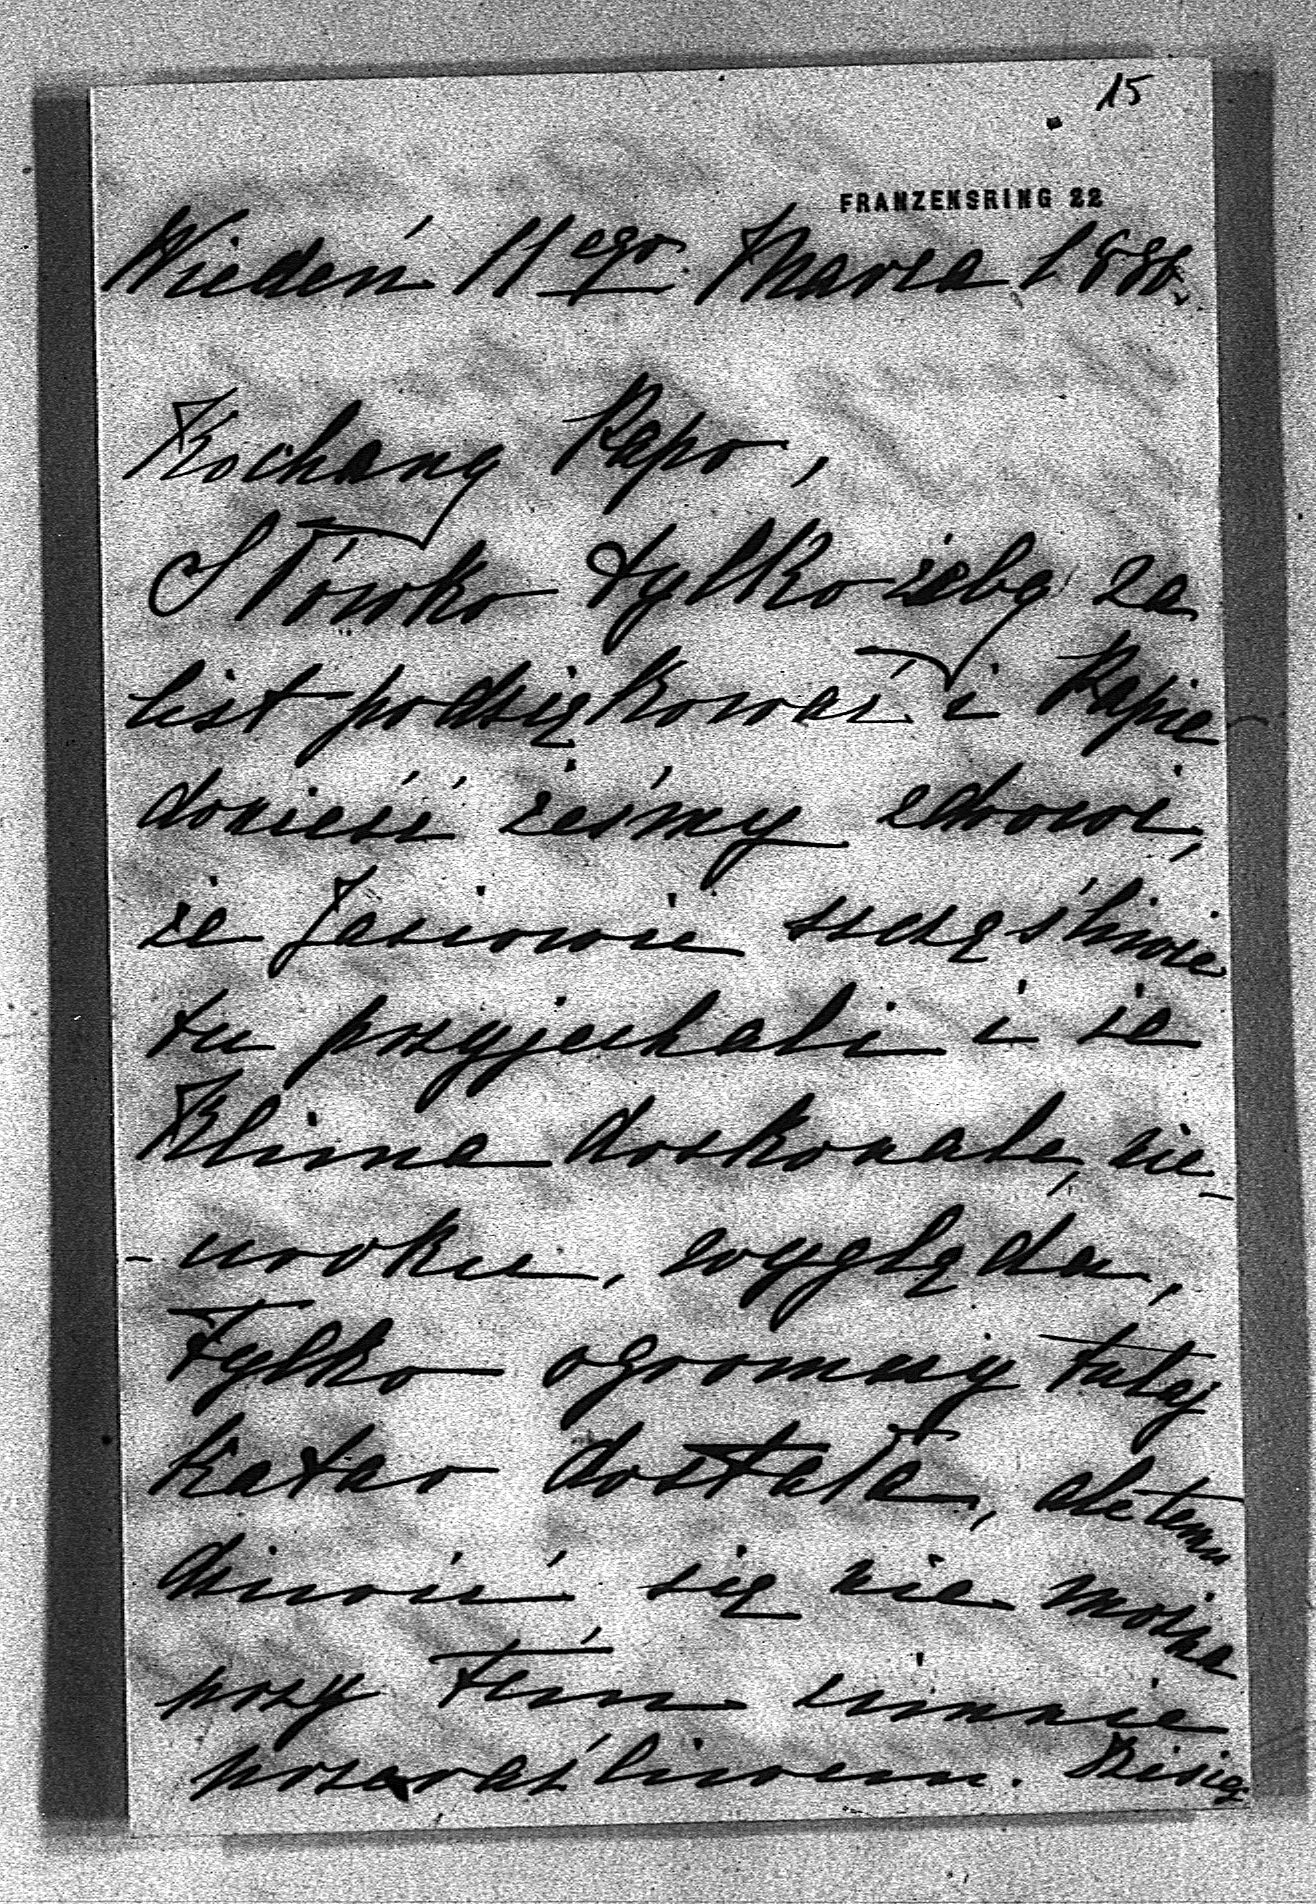 15
FRANZENSRING 22
Wiedeń 11ego Marca 188
Kochany Papo,
Słówko tylko żeby za
list podziękować i Papie
donieść żeśmy zdrowi,
że Jasiowie szczęśliwie
tu przyjechali i że
Klima doskonale, nie-
-urokie, wygląda,
Tylko ogromny tutaj
katar dostała, ale temu
dziwić się nie można
przy tém zimnie
przeraźliwem.